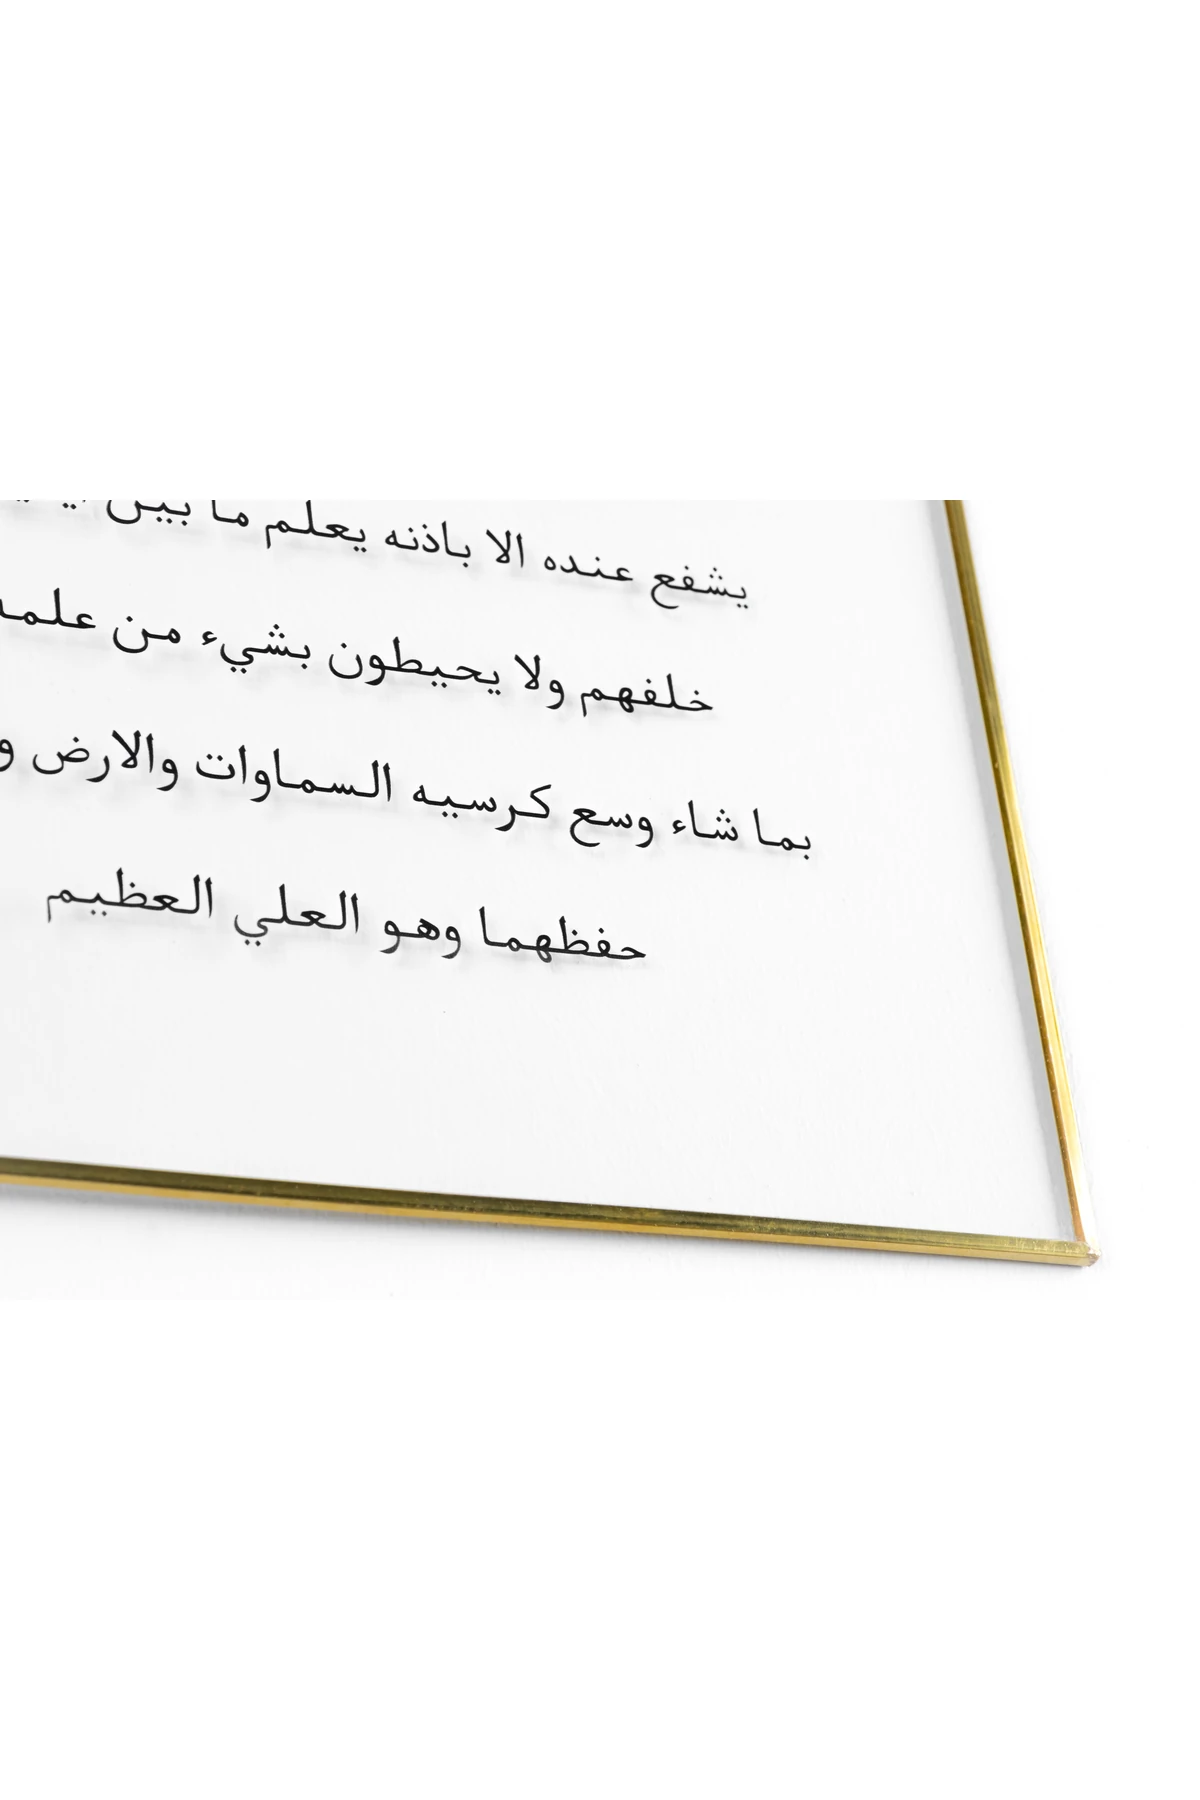 يشفع عنده الا باذنه يعلم ما بين
خلفهم ولا يحيطون بشيء من علمه
بما شاء وسع كرسيه السماوات والارض و
حفظهما وهو العلي العظيم